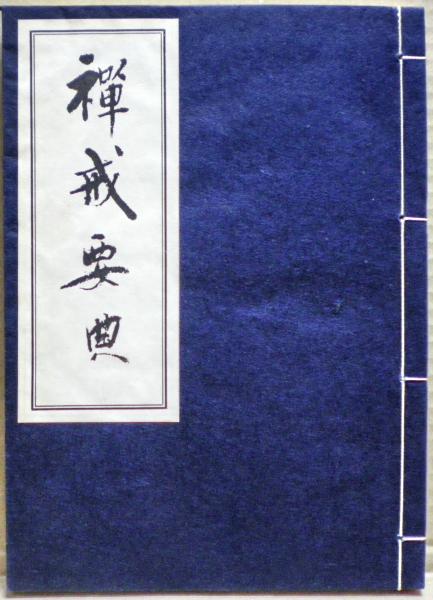 禪戒要典